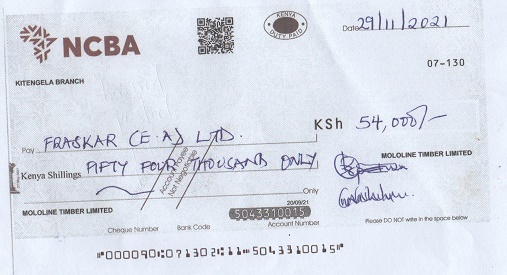 NCBA
KENYA
DUTY PAID
Date 29/11/2021
07-130
KITENGELA BRANCH
Pay FRASKAR (E.A) LTD.
KSh 54,000/-
Kenya Shillings FIFTY FOUR THOUSAND ONLY
Account Payee
Not Negotiable
Only
MOLOLINE TIMBER LIMITED
MOLOLINE TIMBER LIMITED
20/09/21
5043310015
Cheque Number Bank Code Account Number
Please DO NOT write in the space below
⑈000090⑆071302⑆11⑉5043310015⑈